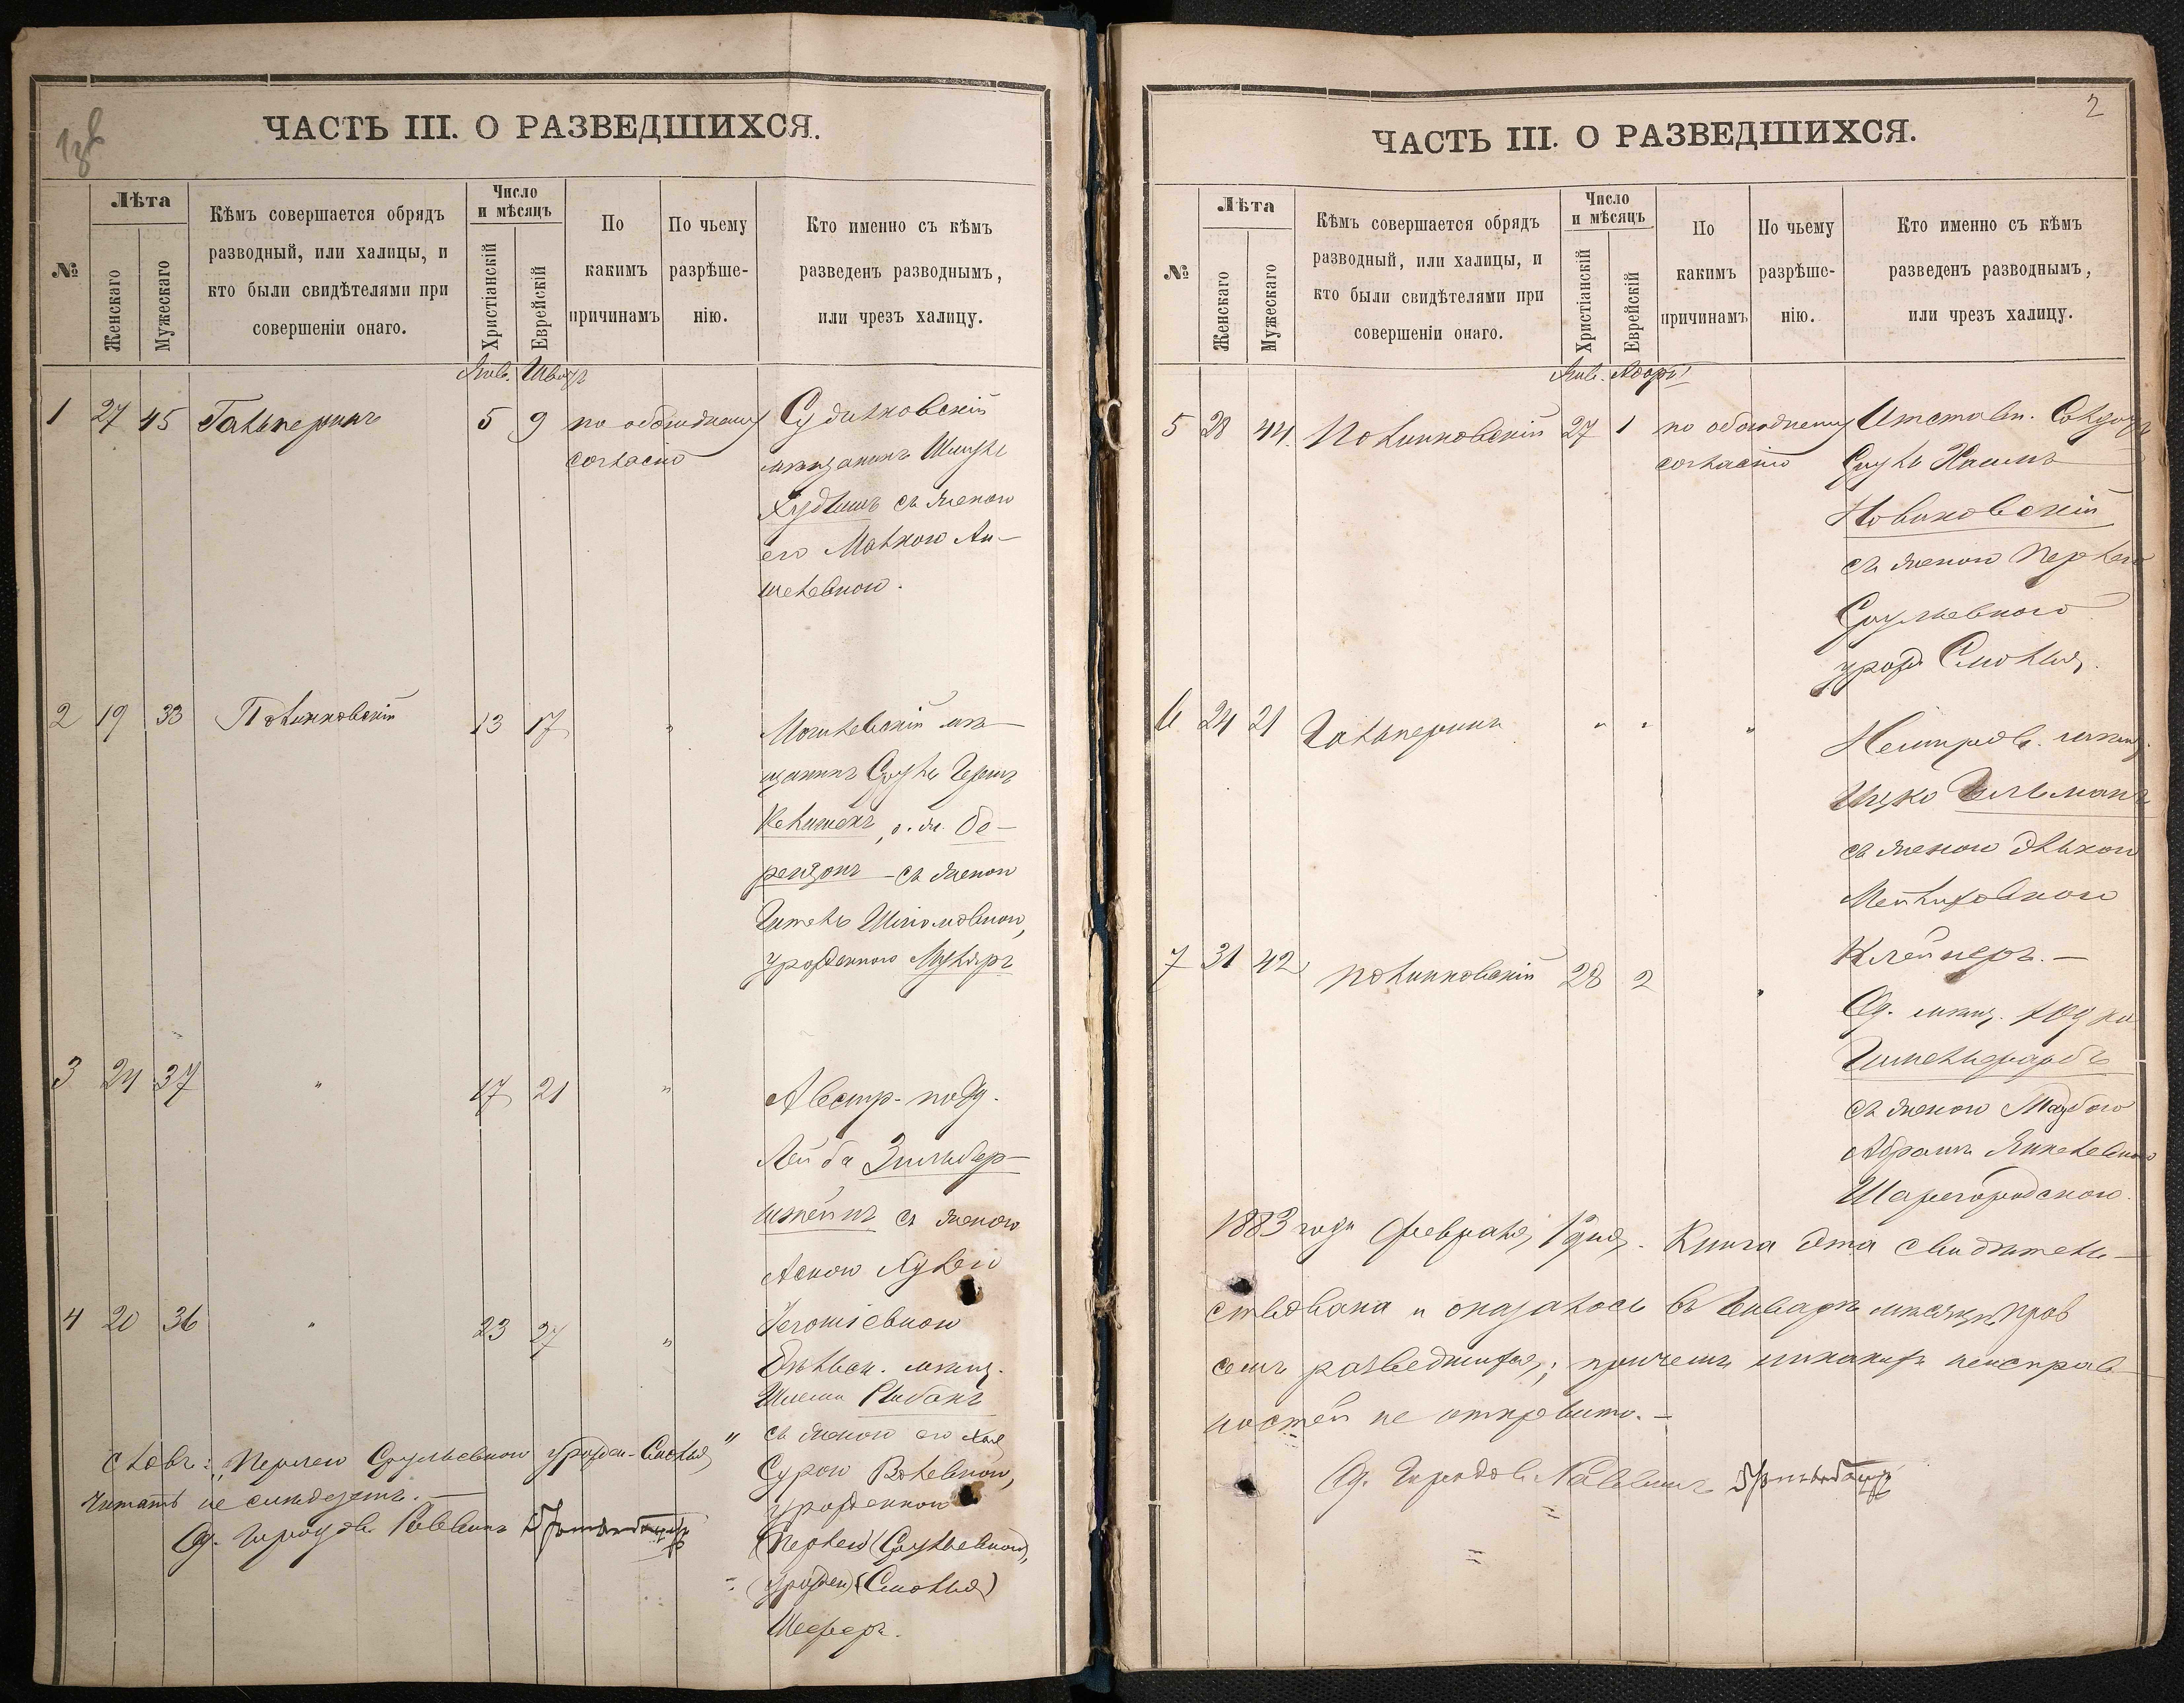 ЧАСТЬ III. О РАЗВЕДШИХСЯ.
№
Лѣта
Женскаго
Мужескаго
Кѣмъ совершается обрядъ
разводный, или халицы, и
кто были свидѣтелями при
совершеніи онаго.
Число
и мѣсяцъ
Христіанскій
Еврейскій
По
какимъ
причинамъ
По чьему
разрѣше-
нію.
Кто именно съ кѣмъ
разведенъ разводнымъ,
или чрезъ халицу.
Янв. Шватъ
1 27 45 Гальперинъ 5 9 по обоюдному Судилковскій
согласію мѣщанинъ
съ женою
его Малкою Ан-
шелевною.
2 19 33 Полинковскій 13 17 " Могилевскій мѣ-
щанинъ Сруль Гершъ
о. ж. Бе-
рензонъ – съ женою
Гитель Шліомовною,
урожденною Мулляръ
3 24 37 " 17 21 " Австр. подд.
Лейба Зильбер-
штейнъ съ женою
4 20 36 " 23 27 "
мѣщ.
Шлема Рыбакъ
съ женою его Хая
Сурою Волевною,
урожденною
(Перлею (Срулевною),
(урожден) (Смоляр)
Шеферъ.
словъ: „Перлею Срульевною урожден. Смоляр"
читать не слѣдуетъ. –
Од. Городов. Раввинъ
2
ЧАСТЬ III. О РАЗВЕДШИХСЯ.
№
Лѣта
Женскаго
Мужескаго
Кѣмъ совершается обрядъ
разводный, или халицы, и
кто были свидѣтелями при
совершеніи онаго.
Число
и мѣсяцъ
Христіанскій
Еврейскій
По
какимъ
причинамъ
По чьему
разрѣше-
нію.
Кто именно съ кѣмъ
разведенъ разводнымъ,
или чрезъ халицу.
Янв. Адаръ
5 28 44 Полинковскій 27 1 по обоюдному Отставн. Солдатъ
согласію Сруль Хаимъ
Новиковскій
съ женою Перлею
Срульевною
урожд. Смоляр.
6 24 21 Гальперинъ " " " Немиров. мѣщ.
Ицко Гельманъ
съ женою Элькою
Мейлиховною
Клейнеръ. –
7 31 42 Полинковскій 28 2 " Од. мѣщ. Юдко
съ женою Таубою
Абрамъ Янкелевною
Шаргородскою.
1883 года Февраля 1 дня. Книга эта свидѣтель-
ствована и оказалось въ Январѣ мѣсяцѣ
семь разведшихся; причемъ никакихъ неисправ-
ностей не открыто. –
Од. Городов. Раввинъ